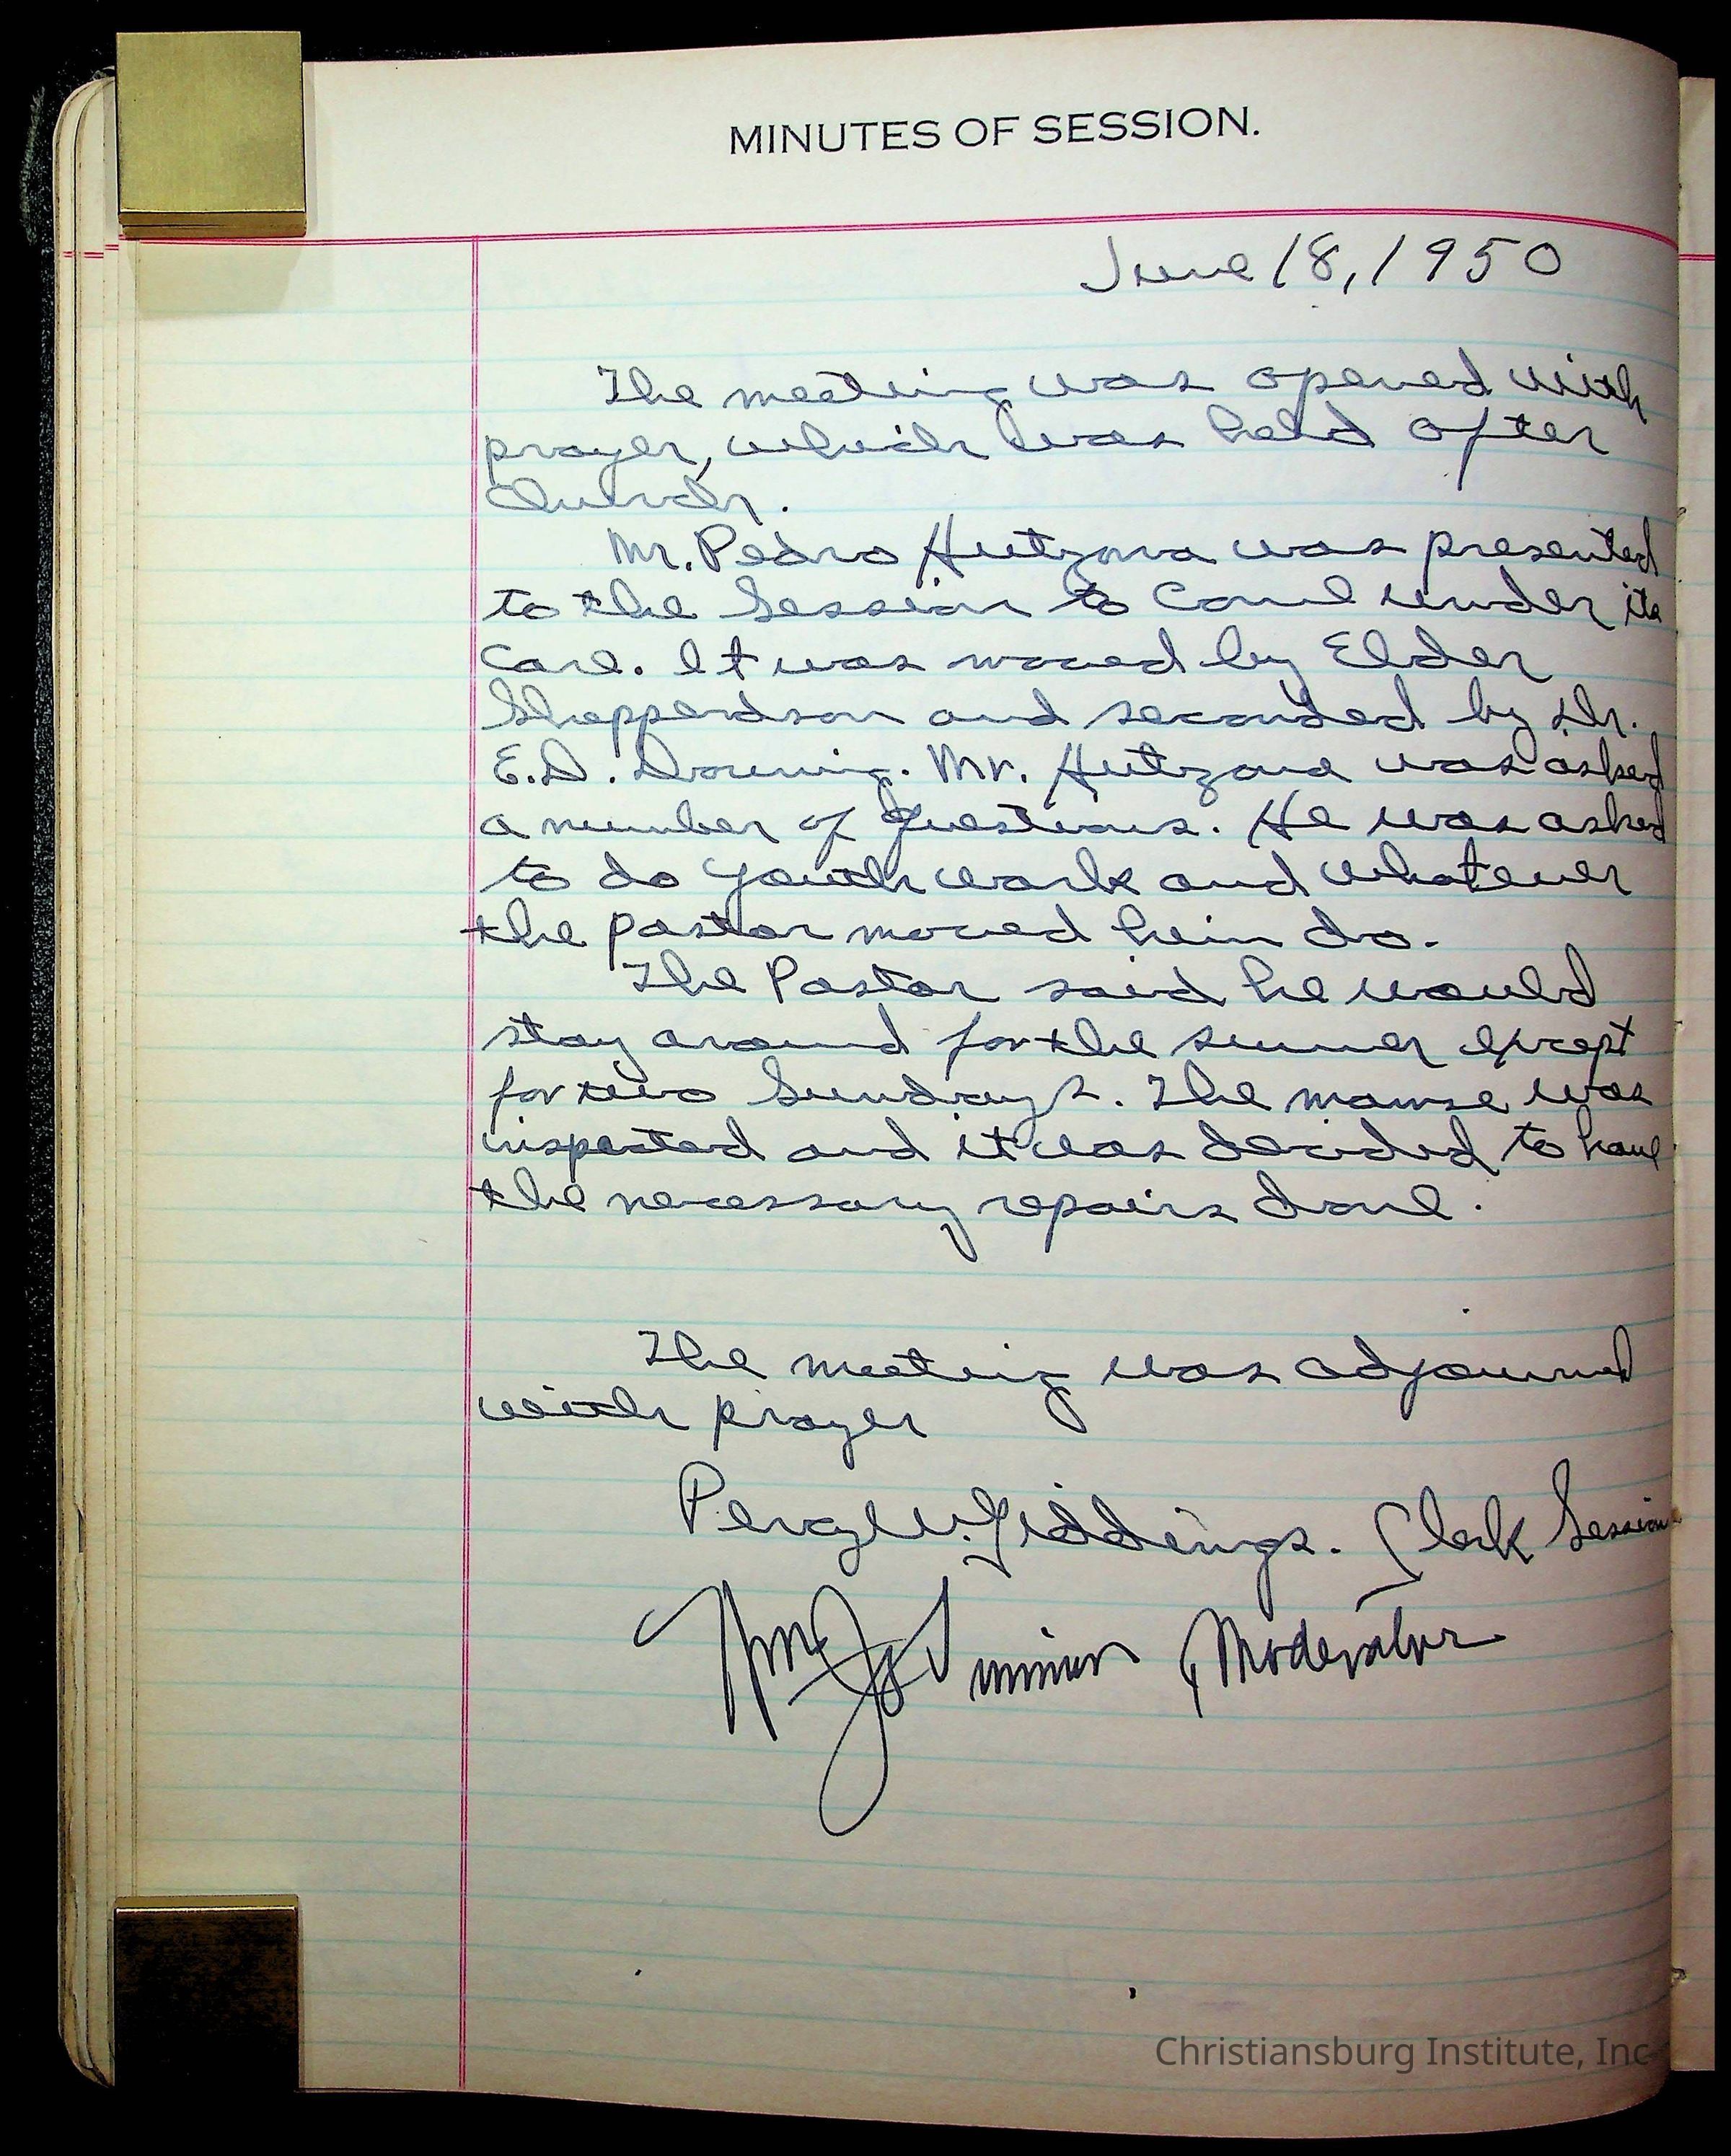 MINUTES OF SESSION.
June 18, 1950
The meeting was opened with
prayer, which was held after
Church.
Mr. Pedro was presented
to the Session to come under its
care. It was moved by Elder
Shepperdson and seconded by Dr.
E.D. Downing. Mr. was asked
a number of questions. He was asked
to do youth work and whatever
the pastor moved him do.
The Pastor said he would
stay around for the summer except
for two Sundays. The manse was
inspected and it was decided to have
the necessary repairs done.
The meeting was adjourned
with prayer
Percy W. Giddings. Clerk Session
Wm Simmons, Moderator
Christiansburg Institute, Inc